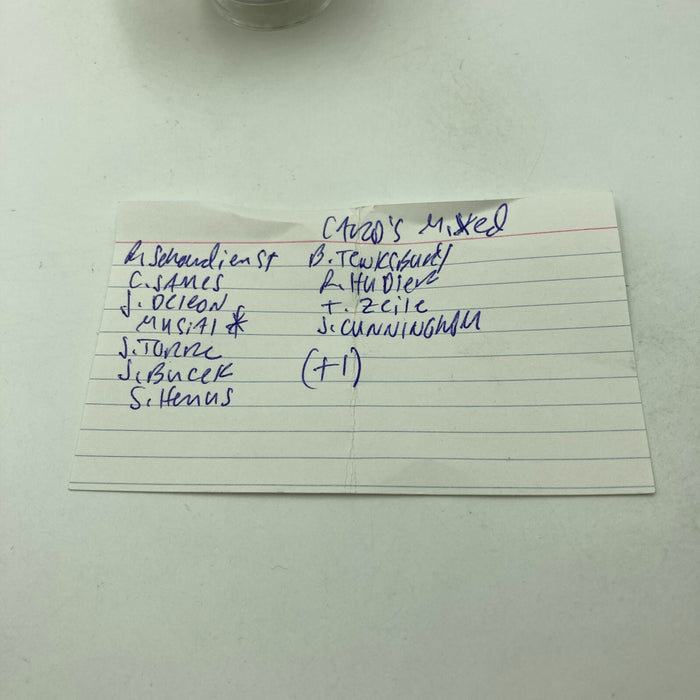 CARD'S MIXED
R. Schoudienst
C. JAMES
J. DELEON
MUSIAL *
J. TORRE
J. BUCEK
S. Hemus
B. TEWKSBURY
R. HUDLER
T. Zeile
J. CUNNINGHAM
(+1)